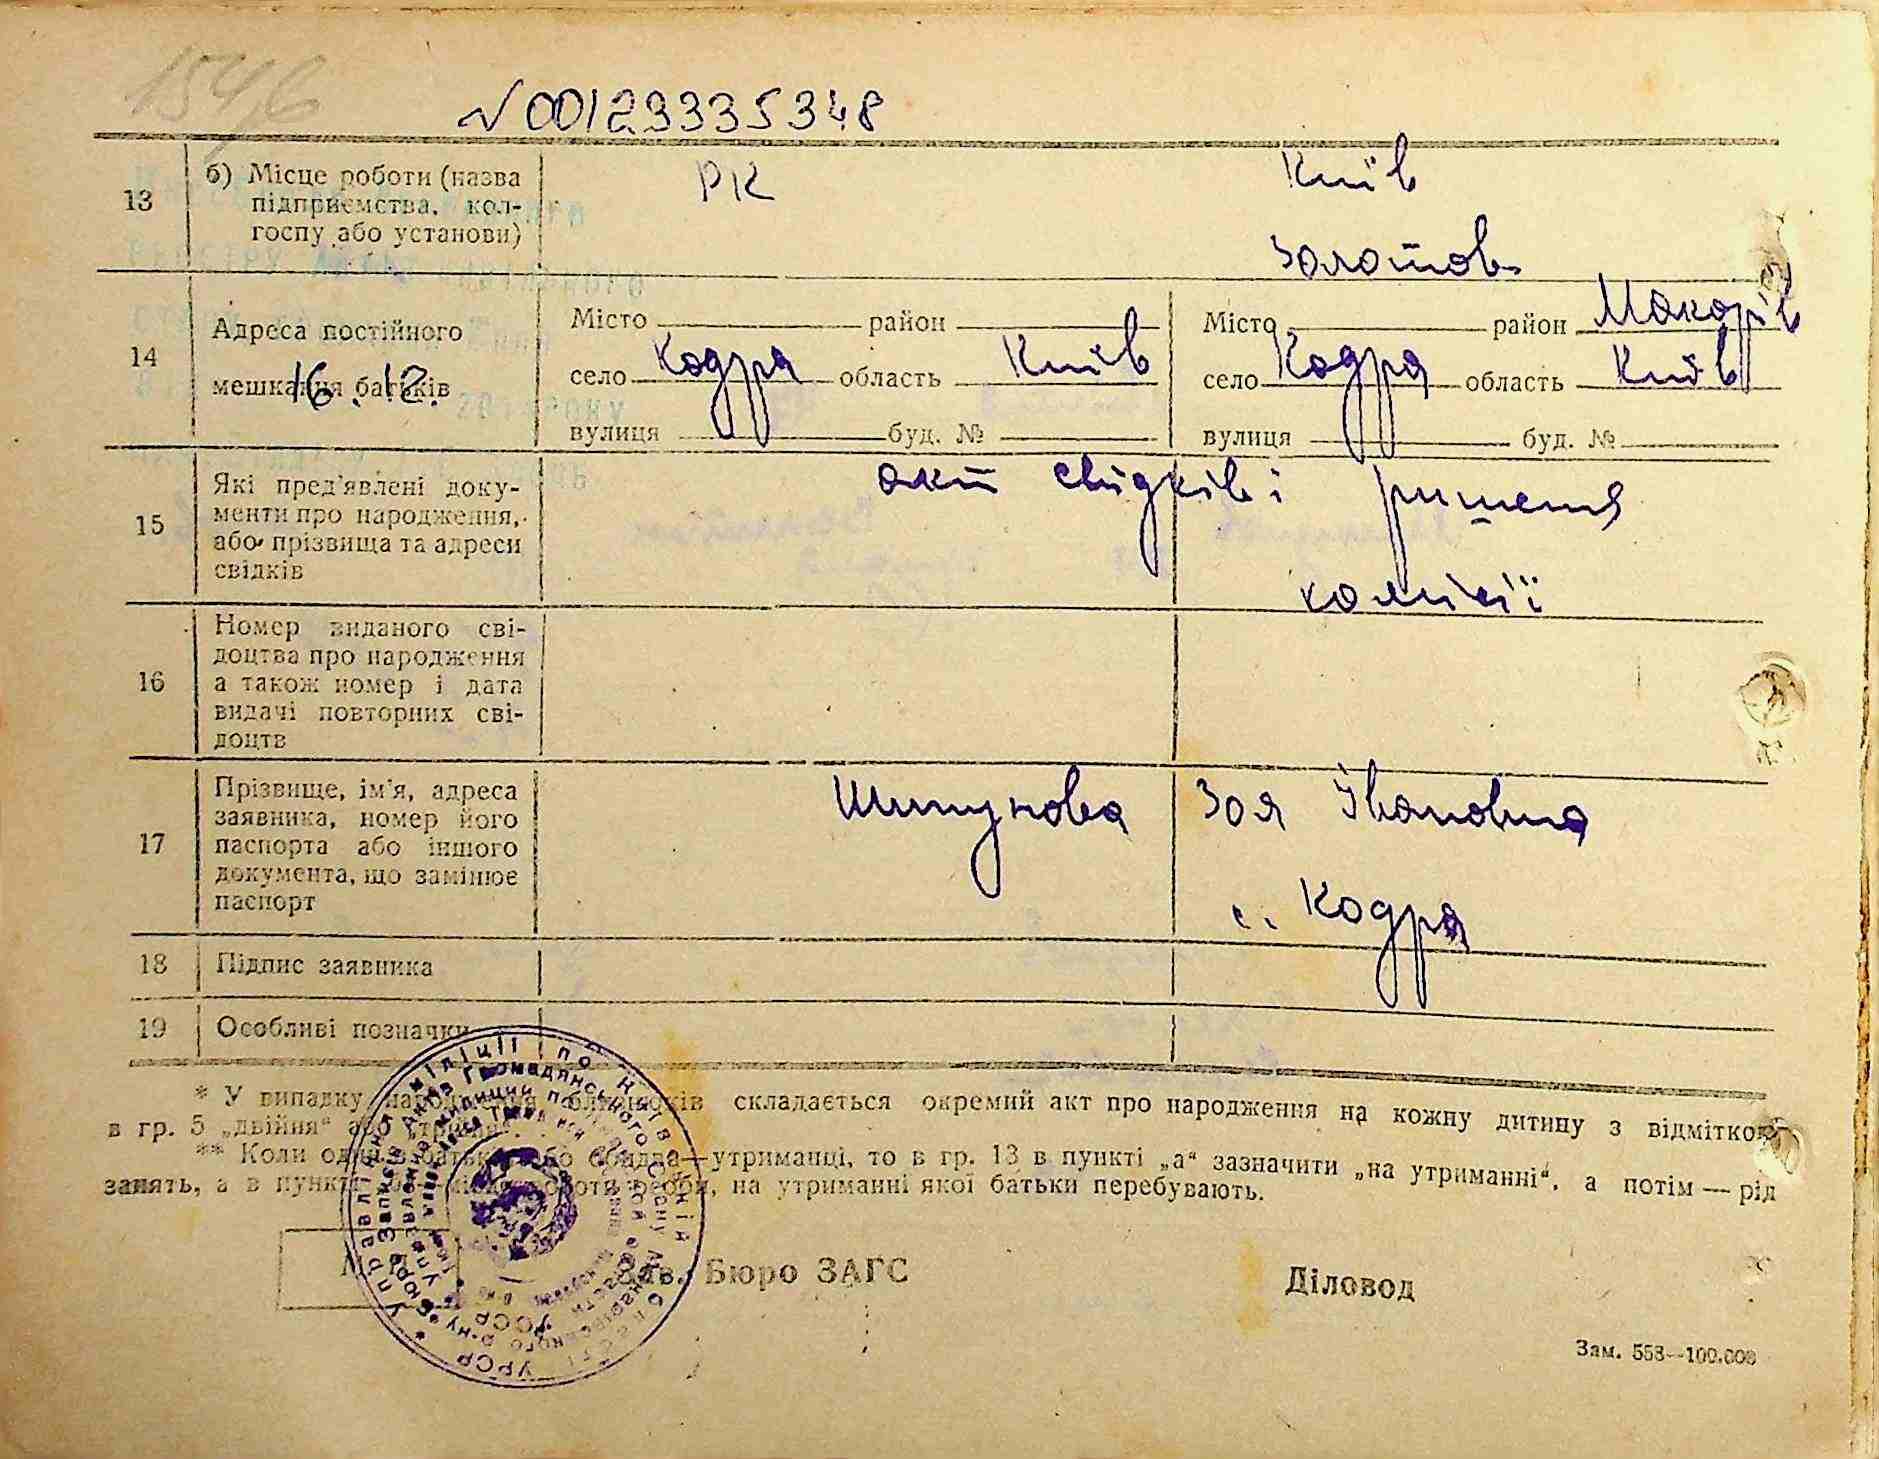 1546
№00129335348
13 б) Місце роботи (назва РК Київ
підприємства, кол-
госпу або установи) Золотов
14 Адреса постійного Місто район Місто район Макарів
мешкання батьків 16.12. село Кодра область Київ село Кодра область Київ
вулиця буд. № вулиця буд. №
15 Які пред'явлені доку- акт свідків і ришеня
менти про народження,
або прізвища та адреси
свідків комісії
16 Номер виданого сві-
доцтва про народження
а також номер і дата
видачі повторних сві-
доцтв
17 Прізвище, ім'я, адреса Шипунова Зоя Івановна
заявника, номер його
паспорта або іншого
документа, що замінює с. Кодра
паспорт
18 Підпис заявника
19 Особливі позначки
* У випадку народження близнюків складається окремий акт про народження на кожну дитину з відміткою
в гр. 5 „двійня“ або „трійня“.
** Коли один з батьків або обидва—утриманці, то в гр. 13 в пункті „а“ зазначити „на утриманні“, а потім — рід
занять, а в пункті „б“ місце роботи особи, на утриманні якої батьки перебувають.
Зав. Бюро ЗАГС Діловод
Зам. 558—100.000